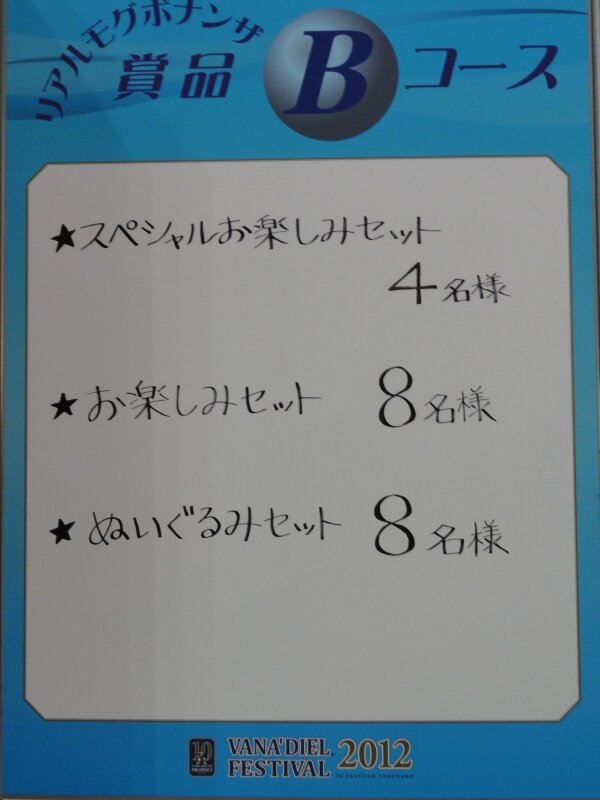 リアルモグボナンザ
賞品 B コース
★スペシャルお楽しみセット
4名様
★お楽しみセット 8名様
★ぬいぐるみセット 8名様
VANA'DIEL
FESTIVAL 2012
IN PACIFICO YOKOHAMA